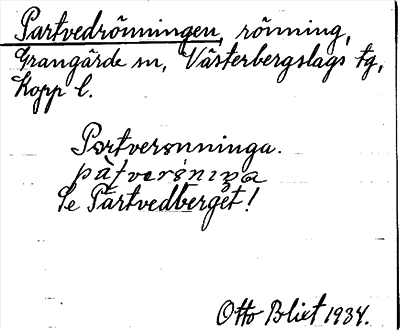 Partvedrönningen, rönning,
Grangärde sn, Västerbergslags tg,
Kopp l.
Partverönninga.
Se Partvedberget!
Otto Blixt 1934.